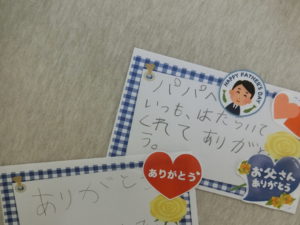 パパへ
いつも、はたらいて
くれてありがと
う。
HAPPY FATHER'S DAY
お父さん
ありがとう
ありがとう
ありがとう